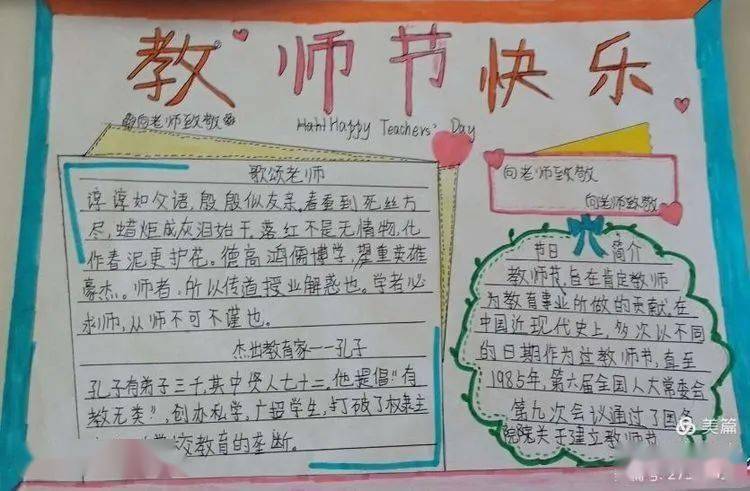 教师节快乐
向老师致敬
Hahl Happy Teachers' Day
歌颂老师
谆谆如父语,殷殷似友亲。春蚕到死丝方
尽,蜡炬成灰泪始干。落红不是无情物,化
作春泥更护花。德高鸿儒博学,望重英雄
豪杰。师者,所以传道授业解惑也。学者必
求师,从师不可不谨也。
杰出教育家——孔子
孔子有弟子三千,其中贤人七十二,他提倡"有
教无类",创办私学,广招学生,打破了权隶主
校教育的垄断。
向老师致敬
向老师致敬
节日 简介
教师节,旨在肯定教师
为教育事业所做的贡献。在
中国近现代史上,多次以不同
的日期作为过教师节,直至
1985年,第六届全国人大常委会
第九次会议通过了国务
院关于建立教师节
美篇